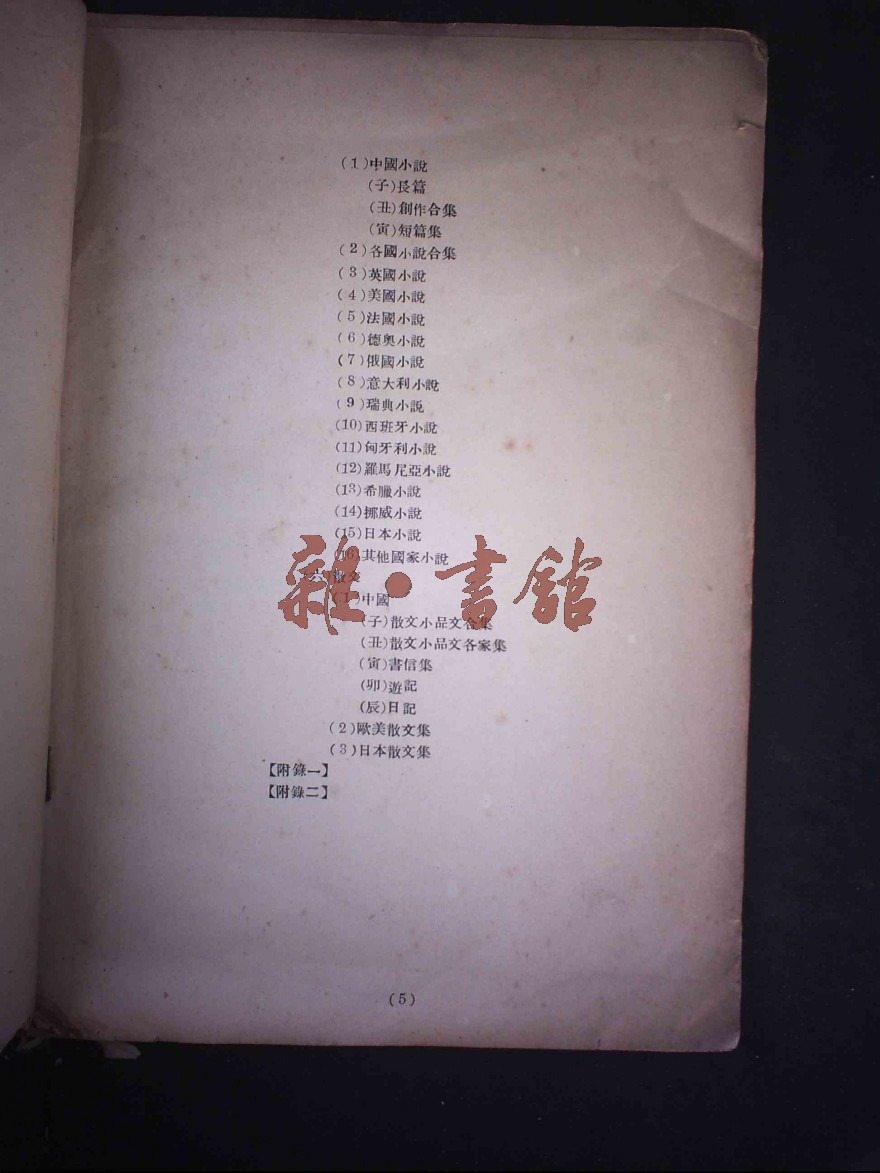 (1)中國小說
(子)長篇
(丑)創作合集
(寅)短篇集
(2)各國小說合集
(3)英國小說
(4)美國小說
(5)法國小說
(6)德奧小說
(7)俄國小說
(8)意大利小說
(9)瑞典小說
(10)西班牙小說
(11)匈牙利小說
(12)羅馬尼亞小說
(13)希臘小說
(14)挪威小說
(15)日本小說
(16)其他國家小說
六 散文
(1)中國
(子)散文小品文合集
(丑)散文小品文各家集
(寅)書信集
(卯)遊記
(辰)日記
(2)歐美散文集
(3)日本散文集
【附錄一】
【附錄二】
雜·書館
(5)